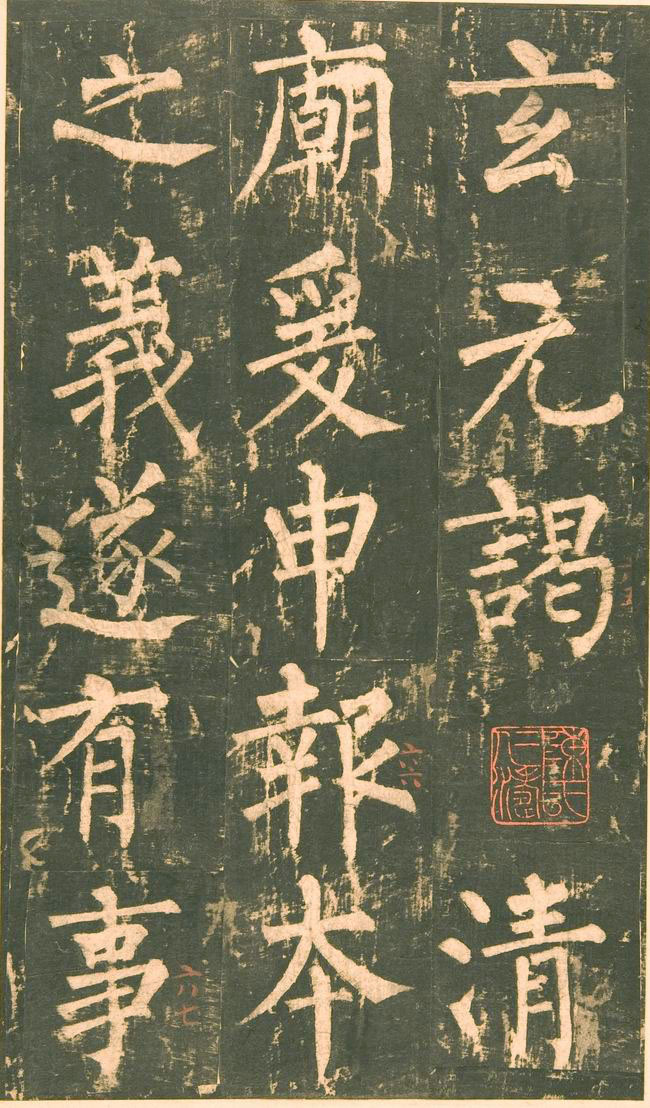 玄元謁清
廟爰申報本
之義遂有事
六六
六七